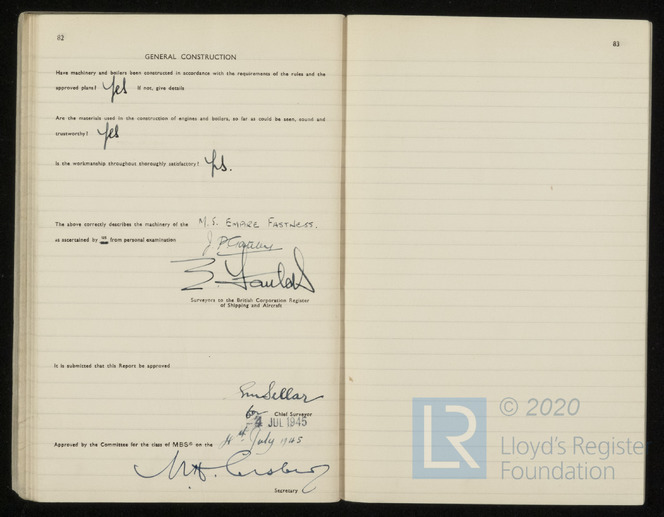 82
GENERAL CONSTRUCTION
Have machinery and boilers been constructed in accordance with the requirements of the rules and the
approved plans? Yes If not, give details
Are the materials used in the construction of engines and boilers, so far as could be seen, sound and
trustworthy? Yes
Is the workmanship throughout thoroughly satisfactory? Yes.
The above correctly describes the machinery of the M.S. EMPIRE FASTNESS.
as ascertained by us from personal examination
Surveyors to the British Corporation Register
of Shipping and Aircraft
It is submitted that this Report be approved
for Chief Surveyor
-4 JUL 1945
Approved by the Committee for the class of MBS* on the 4th July 1945
Secretary
83
LR
© 2020
Lloyd's Register
Foundation